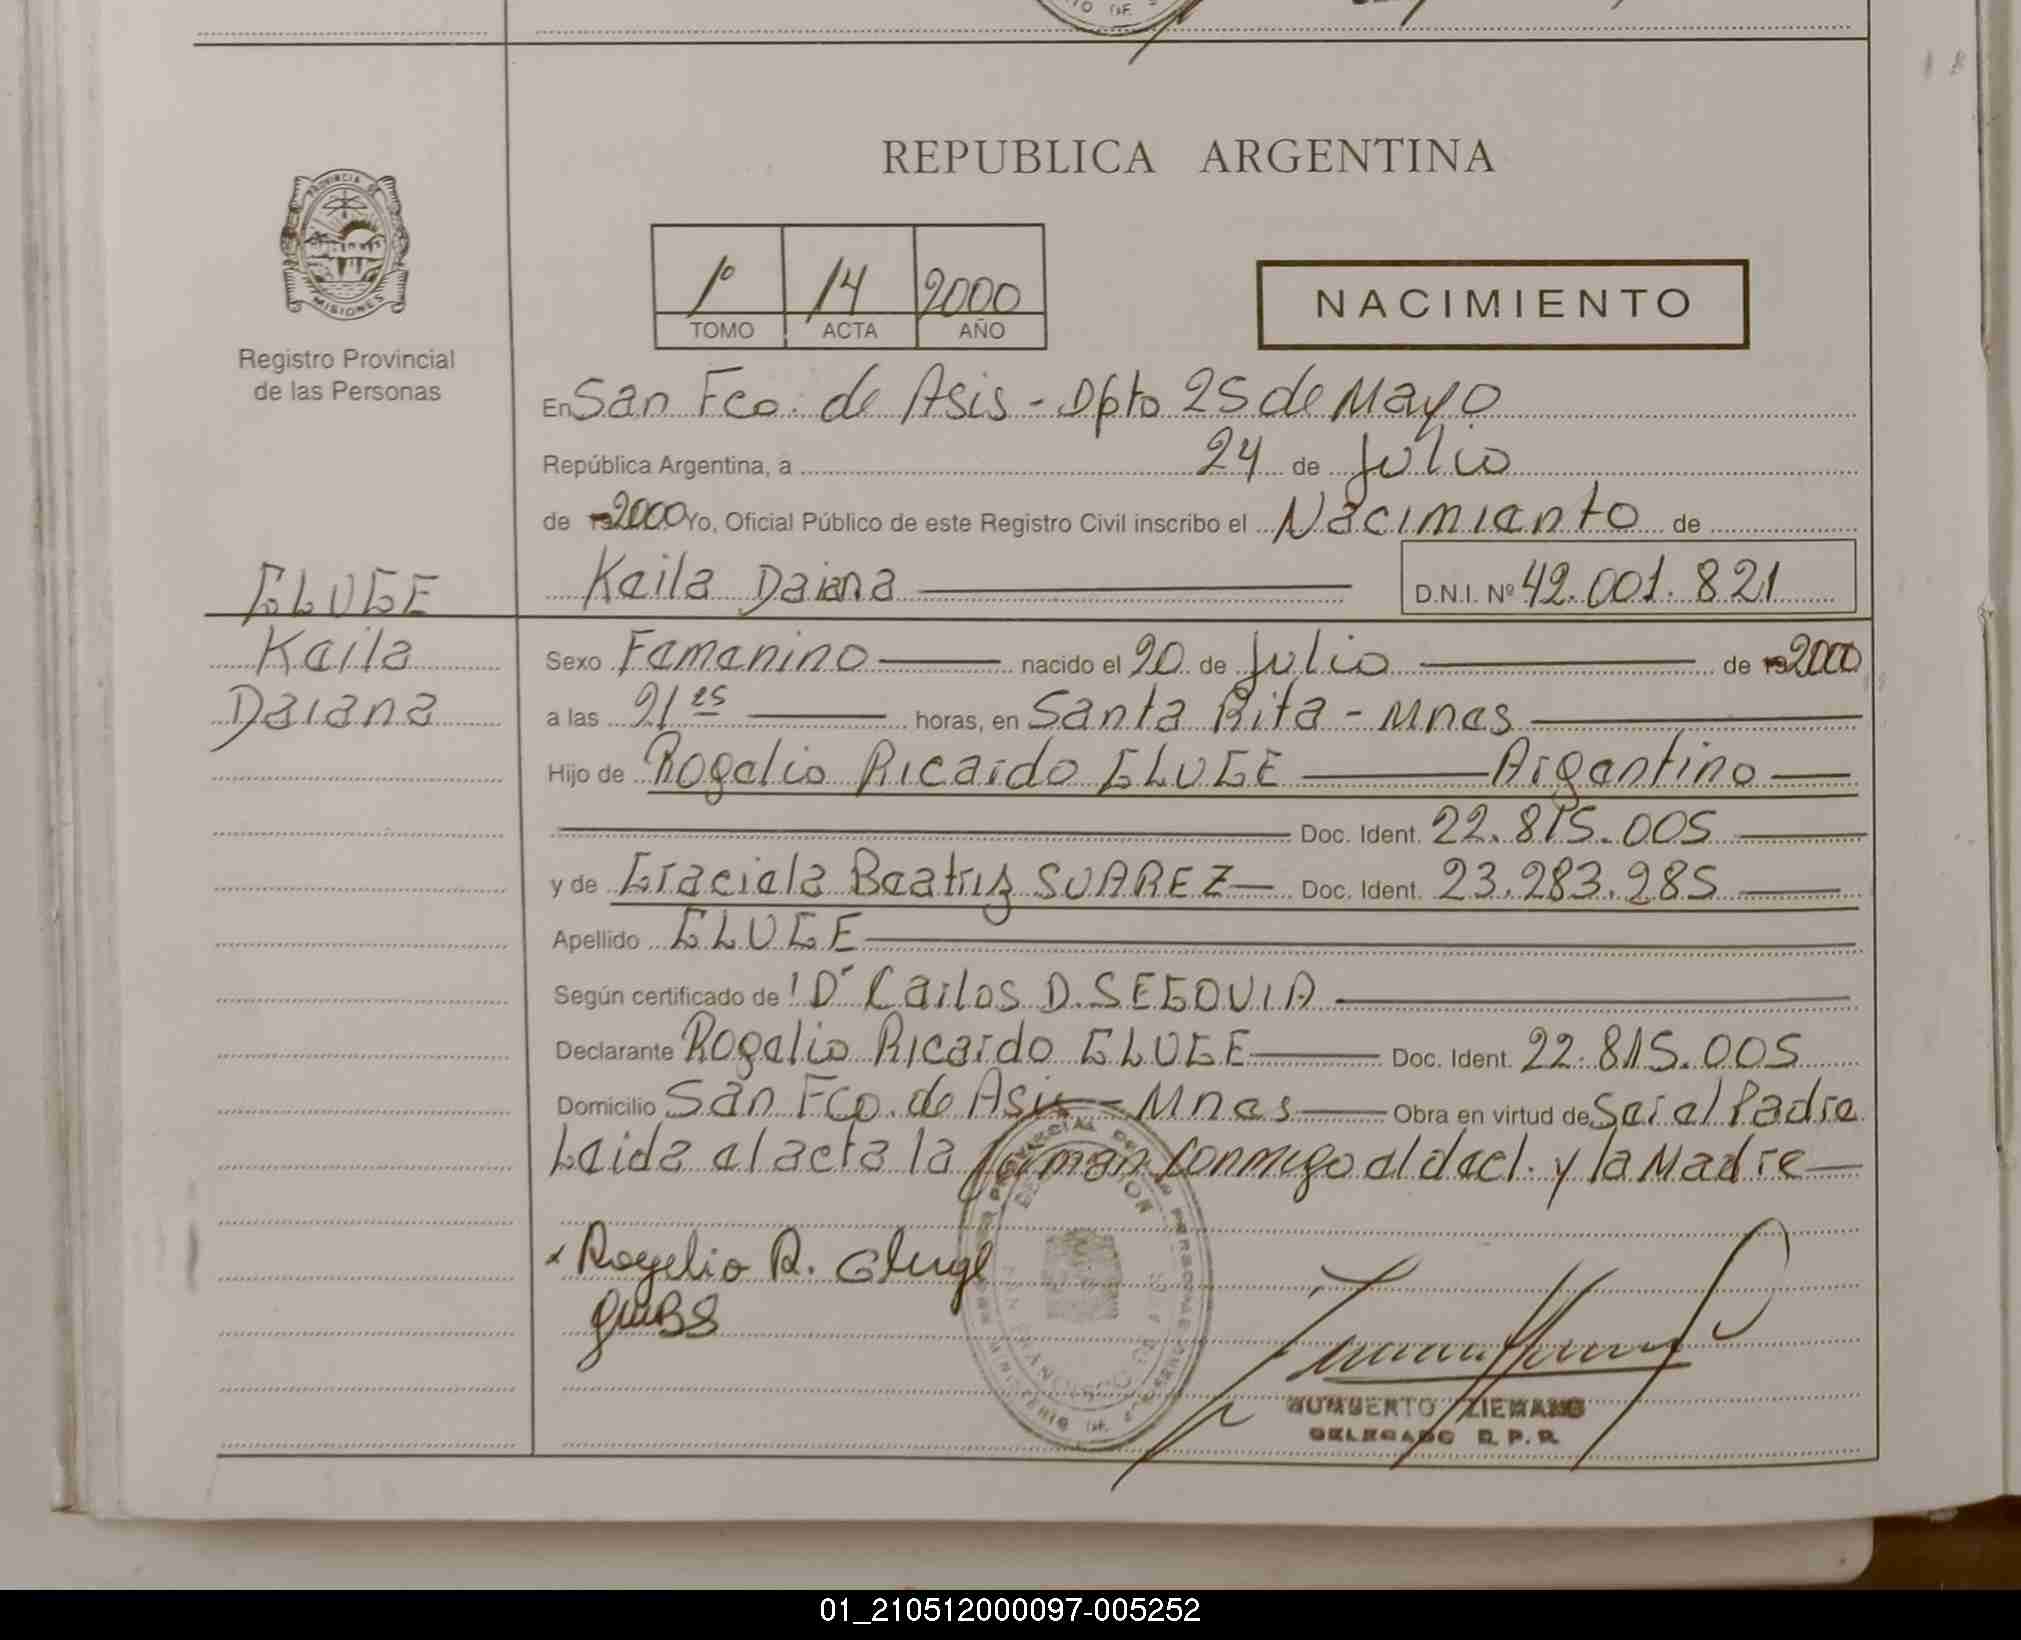 REPUBLICA ARGENTINA
PROVINCIA DE
MISIONES
Registro Provincial
de las Personas
1º 14 2000
TOMO ACTA AÑO
NACIMIENTO
En San Fco. de Asis - Dpto 25 de Mayo
República Argentina, a 24 de Julio
de 2000 Yo, Oficial Público de este Registro Civil inscribo el Nacimiento de
Keila Daiana D.N.I. Nº 42.001.821
GLUGE
Keila
Daiana
Sexo Femenino nacido el 20 de Julio de 2000
a las 21 25 horas, en Santa Rita - Mnes
Hijo de Rogelio Ricardo GLUGE Argentino
Doc. Ident. 22.815.005
y de Graciela Beatriz SUAREZ Doc. Ident. 23.283.285
Apellido GLUGE
Según certificado de Dr Carlos D. SEGOVIA
Declarante Rogelio Ricardo GLUGE Doc. Ident. 22.815.005
Domicilio San Fco. de Asis - Mnes Obra en virtud de Ser el Padre
Leida el acta la firman conmigo el decl. y la Madre
x Rogelio R. Gluge
HUMBERTO ZIEMANN
DELEGADO R. P. P.
01_210512000097-005252